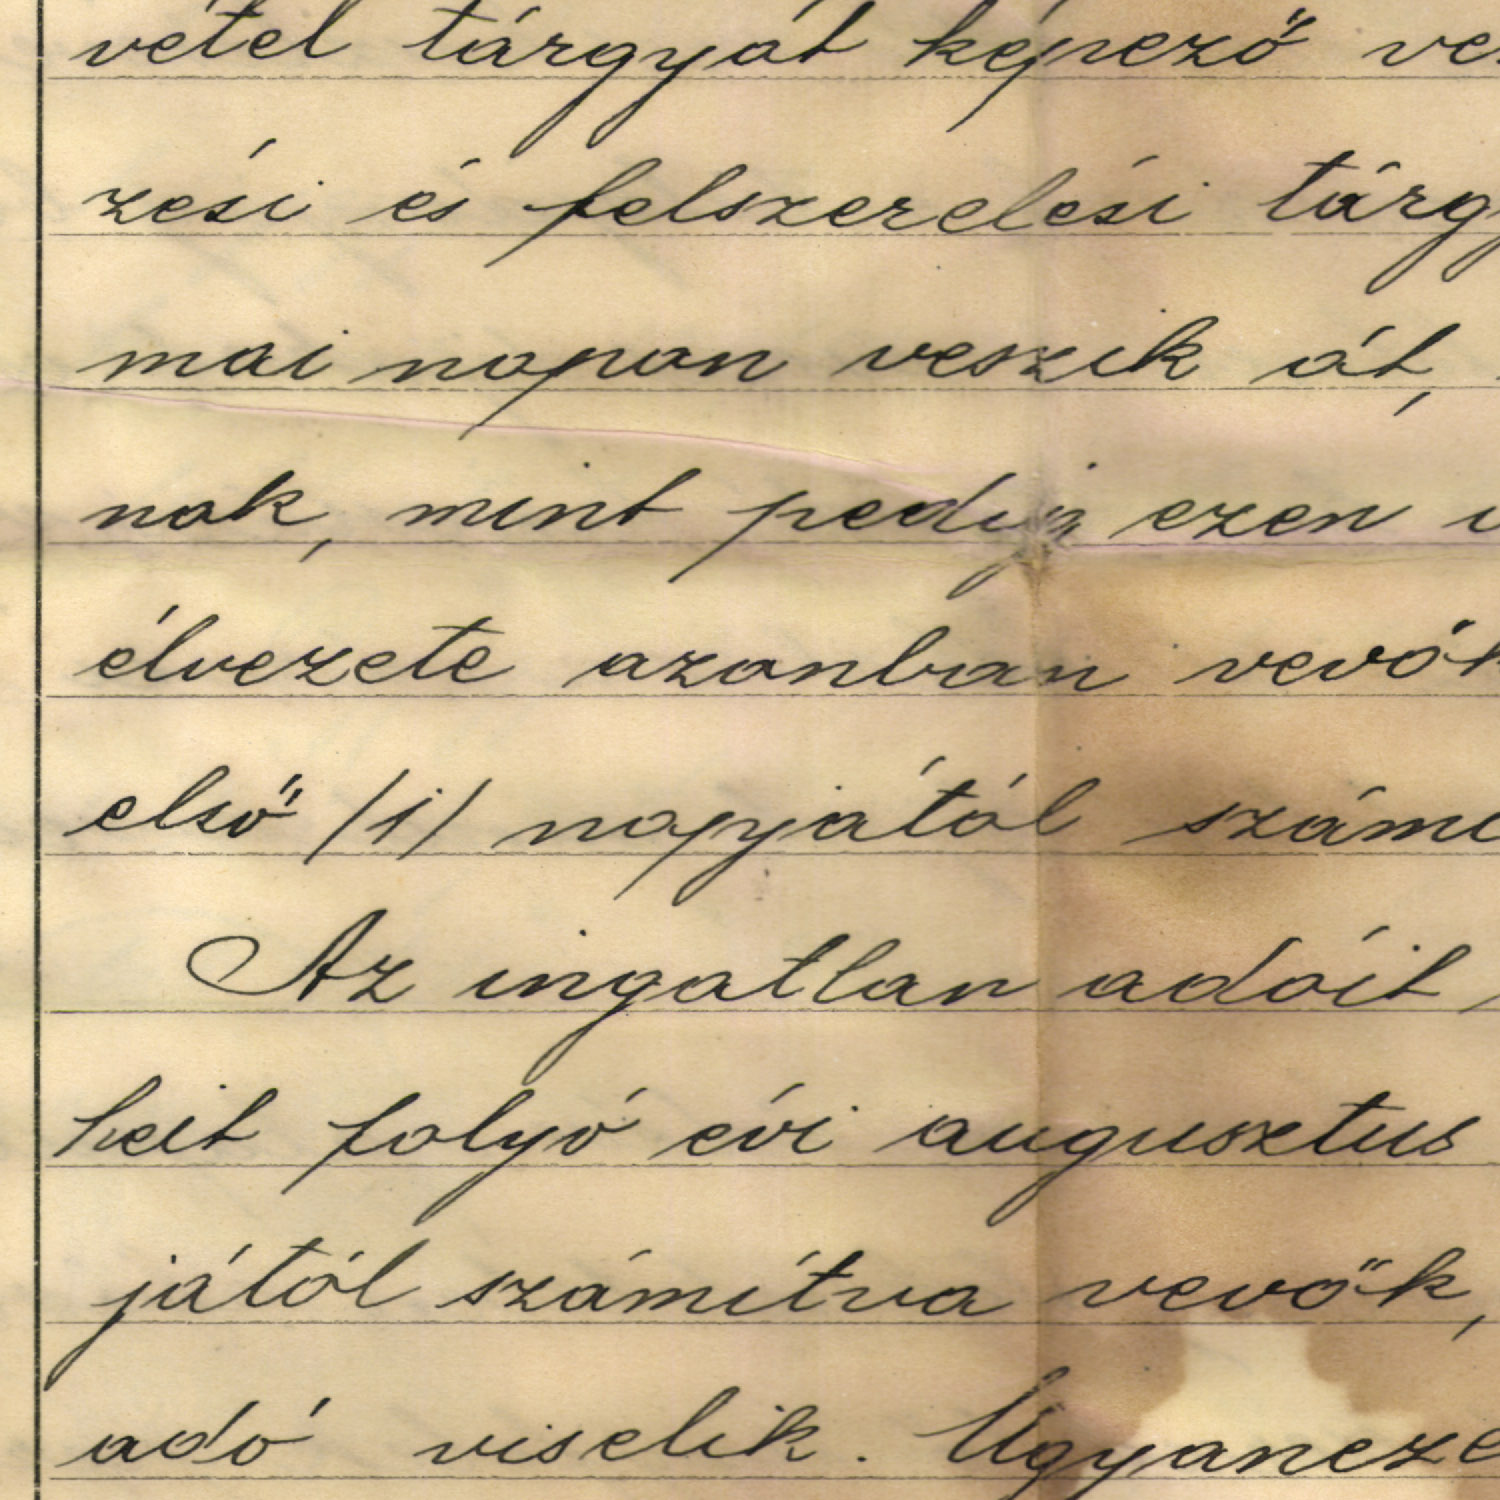 vétel tárgyát képező ve
zési és felszerelési tárgy
mai napon veszik át,
nak, mint pedig ezen
élvezete azonban vevők
első /1/ napjától számí
Az ingatlan adóit
heit folyó évi augusztus
jától számítva vevők,
adó viselik. Ugyaneze